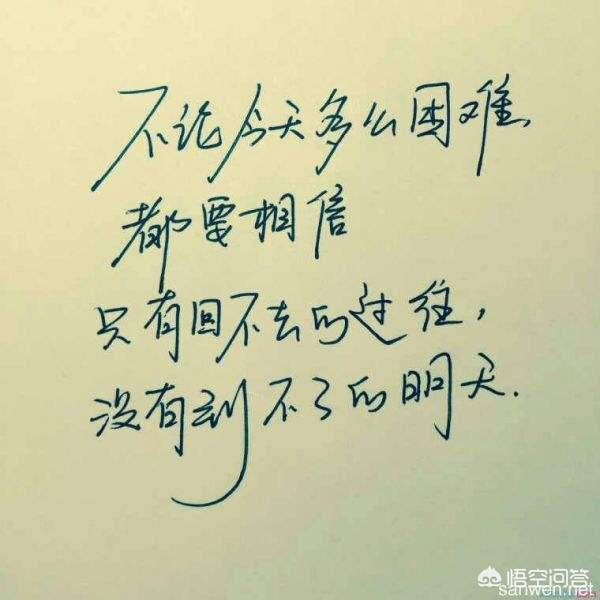 不论今天多么困难,
都要相信
只有回不去的过往,
没有到不了的明天.
悟空问答
sanwen.net